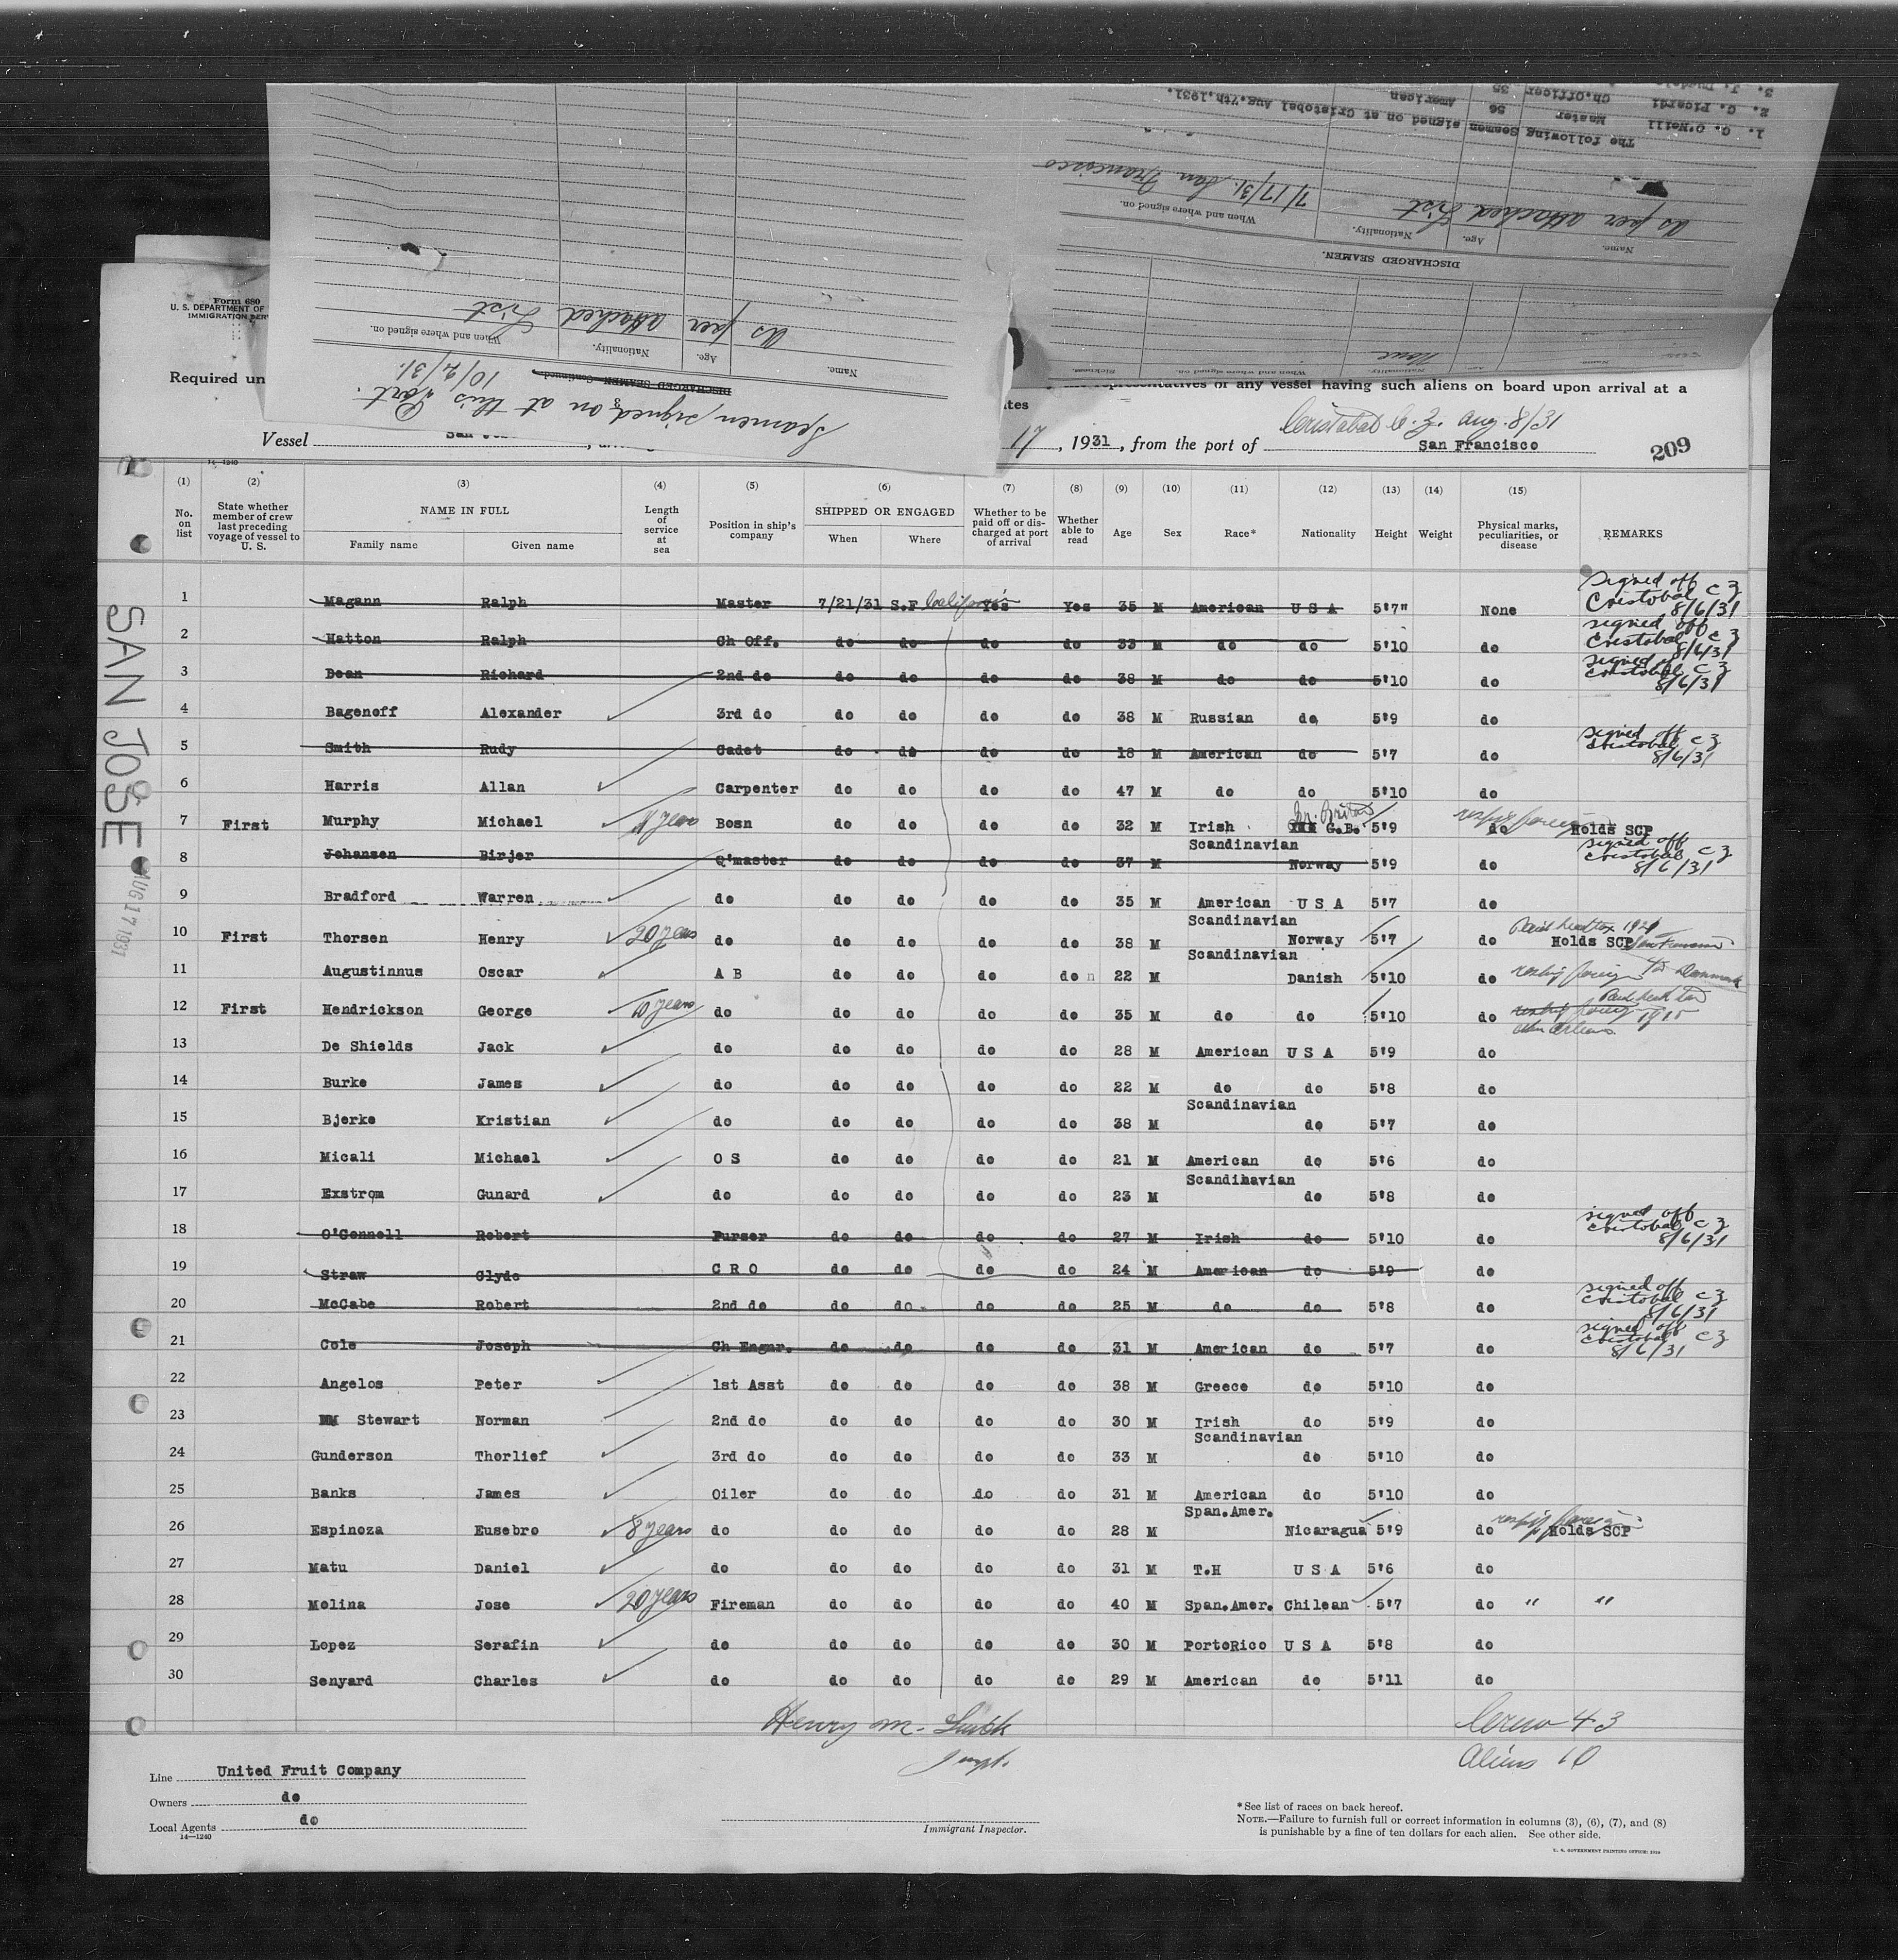 3. J.
2. G. Picardi Ch.Officer 35
1. G. O'Neill Master 56 American
The following Seamen signed on at Cristobal Aug.7th,1931.
As per attached List 7/17/31. San Francisco
Name. Age. Nationality. When and where signed on.
DISCHARGED SEAMEN.
None
Name Nationality. When and where signed on. Sickness.
As per attached List
Name. Age. Nationality. When and where signed on.
DISCHARGED SEAMEN—Continued
Seamen signed on at this Port. 10/2/31.
Form 680
U. S. DEPARTMENT OF
IMMIGRATION SER
Required un
representatives of any vessel having such aliens on board upon arrival at a
Cristobal C.Z. Aug. 8/31
Vessel San 17, 1931, from the port of San Francisco
209
14—1240
SAN JOSE
AUG 17 1931
(1) (2) (3) (4) (5) (6) (7) (8) (9) (10) (11) (12) (13) (14) (15)
No. on list
State whether member of crew last preceding voyage of vessel to U. S.
NAME IN FULL
Family name Given name
Length of service at sea
Position in ship's company
SHIPPED OR ENGAGED
When Where
Whether to be paid off or discharged at port of arrival
Whether able to read
Age Sex Race* Nationality Height Weight
Physical marks, peculiarities, or disease
REMARKS
1 Magann Ralph Master 7/21/31 S.F California Yes Yes 35 M American U S A 5'7" None signed off Cristobal C Z 8/6/31
2 Hatton Ralph Ch Off. do do do do 33 M do do 5'10 do signed off Cristobal C Z 8/6/31
3 Dean Richard 2nd do do do do do 38 M do do 5'10 do signed off Cristobal C Z 8/6/31
4 Bagenoff Alexander 3rd do do do do do 38 M Russian do 5'9 do
5 Smith Rudy Cadet do do do do 18 M American do 5'7 do signed off Cristobal C Z 8/6/31
6 Harris Allan Carpenter do do do do 47 M do do 5'10 do
7 First Murphy Michael Bosn do do do do 32 M Irish G.B. 5'9 do Holds SCP
8 Johansen Birjer Q'master do do do do 37 M Scandinavian Norway 5'9 do signed off Cristobal C Z 8/6/31
9 Bradford Warren do do do do do 35 M American U S A 5'7 do
10 First Thorsen Henry 20 years do do do do do 38 M Scandinavian Norway 5'7 do Holds SCP
11 Augustinnus Oscar A B do do do do 22 M Scandinavian Danish 5'10 do
12 First Hendrickson George 10 years do do do do do 35 M do do 5'10 do
13 De Shields Jack do do do do do 28 M American U S A 5'9 do
14 Burke James do do do do do 22 M do do 5'8 do
15 Bjerke Kristian do do do do do 38 M Scandinavian do 5'7 do
16 Micali Michael O S do do do do 21 M American do 5'6 do
17 Exstrom Gunard do do do do do 23 M Scandinavian do 5'8 do
18 O'Connell Robert Purser do do do do 27 M Irish do 5'10 do signed off Cristobal C Z 8/6/31
19 Straw Clyde C R O do do do do 24 M American do 5'9 do
20 McCabe Robert 2nd do do do do do 25 M do do 5'8 do signed off Cristobal C Z 8/6/31
21 Cole Joseph Ch Engnr. do do do do 31 M American do 5'7 do signed off Cristobal C Z 8/6/31
22 Angelos Peter 1st Asst do do do do 38 M Greece do 5'10 do
23 Stewart Norman 2nd do do do do do 30 M Irish do 5'9 do
24 Gunderson Thorlief 3rd do do do do do 33 M Scandinavian do 5'10 do
25 Banks James Oiler do do do do 31 M American do 5'10 do
26 Espinoza Eusebro 8 years do do do do do 28 M Span.Amer. Nicaragua 5'9 do Holds SCP
27 Matu Daniel do do do do do 31 M T.H U S A 5'6 do
28 Molina Jose 20 years Fireman do do do do 40 M Span.Amer. Chilean 5'7 do " "
29 Lopez Serafin do do do do do 30 M PortoRico U S A 5'8 do
30 Senyard Charles do do do do do 29 M American do 5'11 do
Henry M.
Crew 43
Aliens 10
Line United Fruit Company
Owners do
Local Agents do
14—1240
Immigrant Inspector.
* See list of races on back hereof.
NOTE.—Failure to furnish full or correct information in columns (3), (6), (7), and (8)
is punishable by a fine of ten dollars for each alien. See other side.